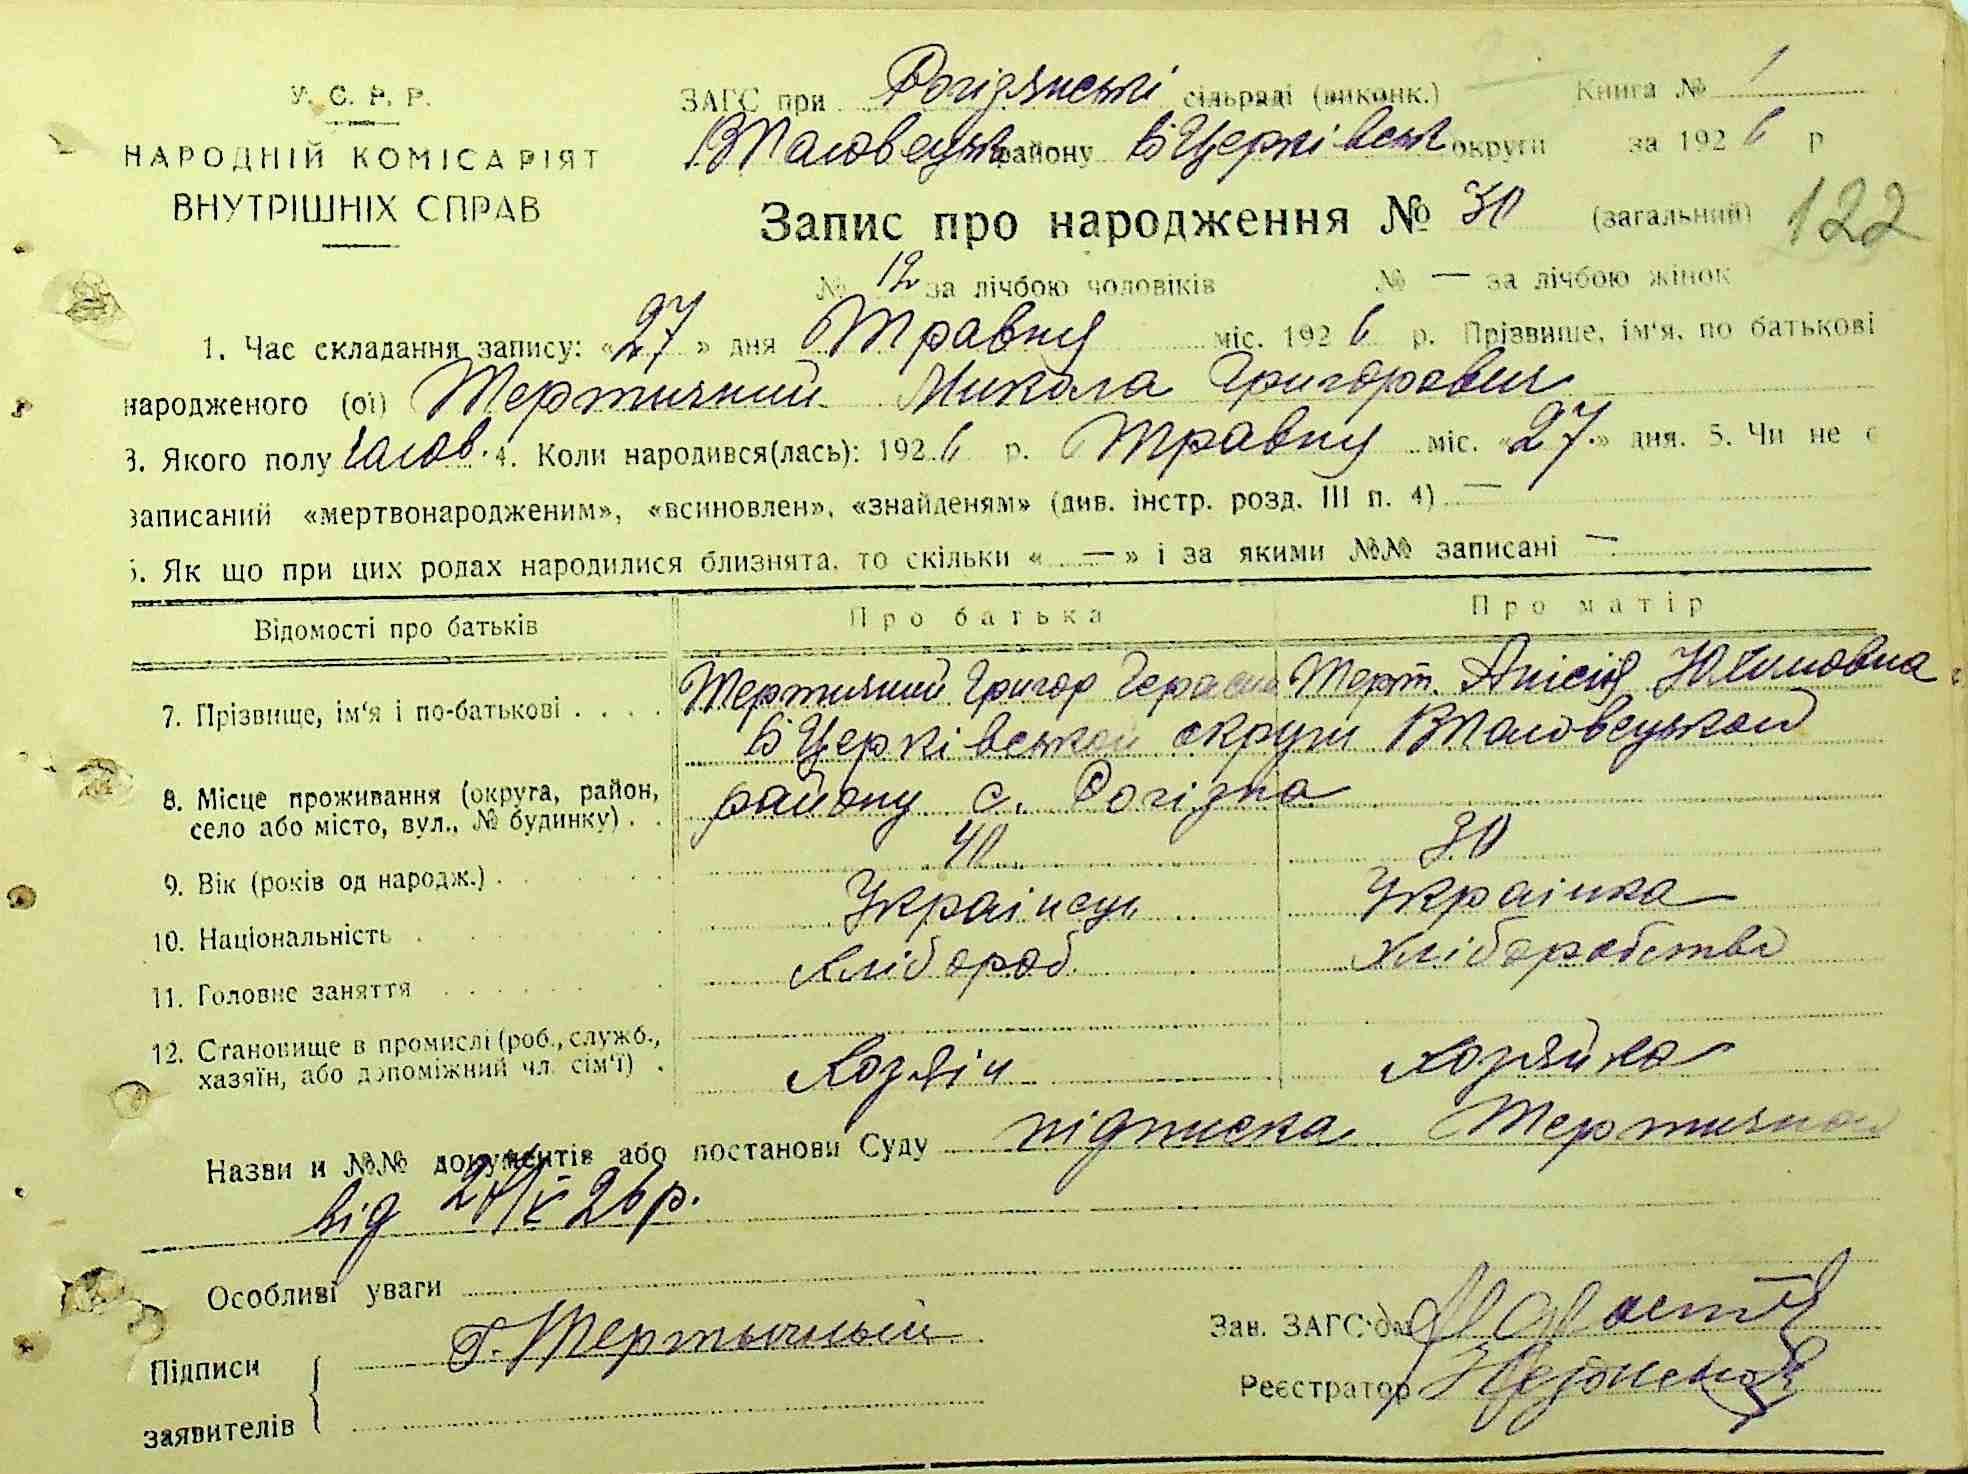 У. С. Р. Р.
НАРОДНІЙ КОМІСАРІЯТ
ВНУТРІШНІХ СПРАВ
ЗАГС при Рогізянські сільраді (виконк.) Книга № 1
ВПоловецьк району БЦерківськ округи за 1926 р
Запис про народження № 30 (загальний) 122
№ 12 за лічбою чоловіків № — за лічбою жінок
1. Час складання запису: «27» дня Травня міс. 1926 р. Прізвище, ім'я, по батькові
народженого (ої) Тертичний Микола Григорович
3. Якого полу чолов. 4. Коли народився(лась): 1926 р. Травня міс. «27.» дня. 5. Чи не є
записаний «мертвонародженим», «всиновлен», «знайденям» (див. інстр. розд. III п. 4) —
6. Як що при цих родах народилися близнята, то скільки « — » і за якими №№ записані —
Відомості про батьків Про батька Про матір
7. Прізвище, ім'я і по-батькові . . . . Тертичний Григор Герасим Терт. Анісія Юхимовна
8. Місце проживання (округа, район, село або місто, вул., № будинку) . . БЦерківськой округи ВПоловецькой
району с. Рогізна
9. Вік (років од народж.) 40 30
10. Національність Українець Українка
11. Головне заняття Хлібороб Хліборобство
12. Становище в промислі (роб., служб.,
хазяїн, або допоміжний чл. сім'ї) . Хозяїн Хозяйка
Назви и №№ документів або постанови Суду підписка Тертичной
від 27/V 26 р.
Особливі уваги
Підписи Г. Тертычный Зав. ЗАГС'ом
заявителів Реєстратор